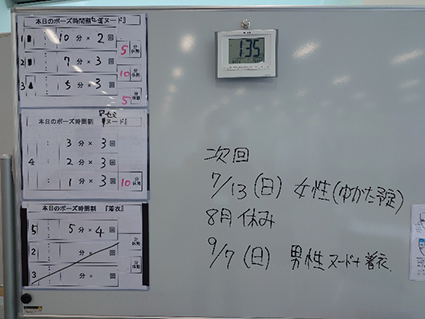 本日のポーズ時間割『ヌード』
1 10 分 × 2 回
5
2 7 分 × 3 回
10
3 5 分 × 3 回
5
本日のポーズ時間割 ヌード』
3 分 × 3 回
4 2 分 × 3 回
1 分 × 3 回
10
本日のポーズ時間割 『着衣』
5 5 分 × 4 回
2 分 × 回
3 分 × 回
1:35
次回
7/13(日) 女性(ゆかた予定)
8月休み
9/7(日) 男性 ヌード+着衣.